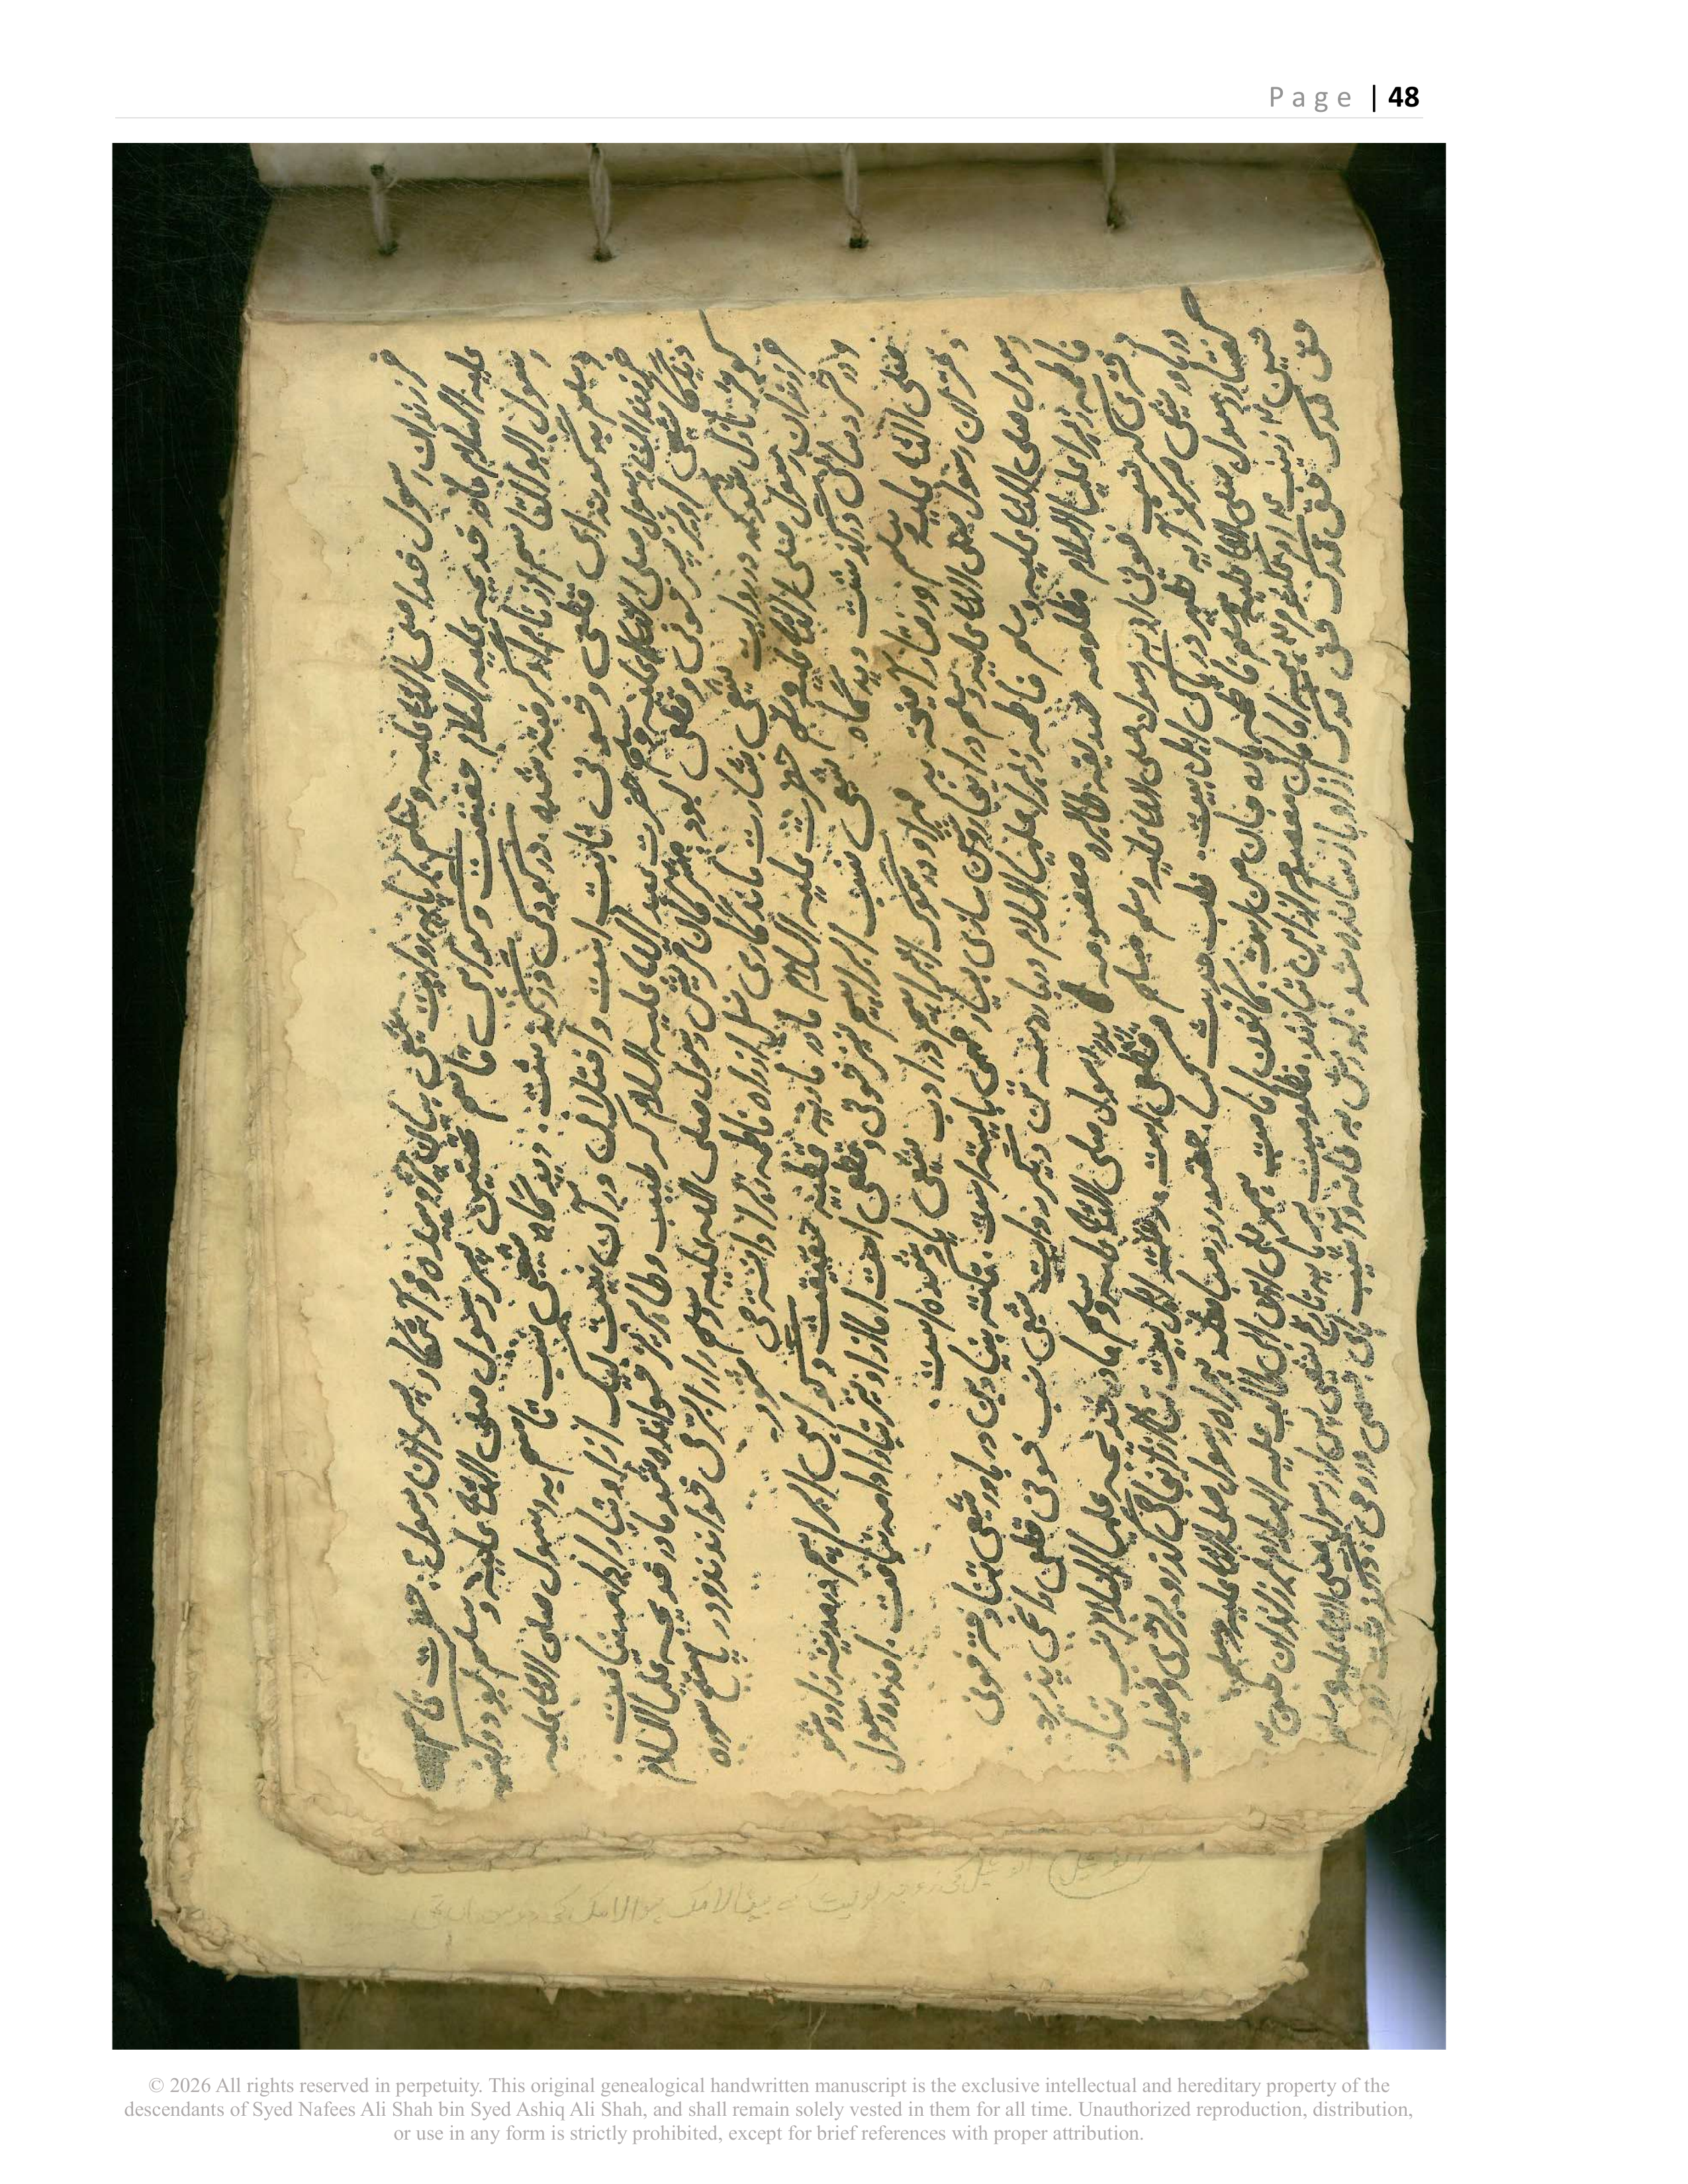 فرزندان رسول خدا صلی الله علیه وسلم بر پایه روایت شیعی بیان و آشکار پسران رسول: حضرت قاسم
علیه السلام مادر خدیجه علیه السلام حقیقت و کورسی قاسم نخستین پسر رسول صلی الله علیه وسلم بود و کنیه
رسول ابوالقاسم از نام او گرفته شده. در کودکی درگذشت. دیدگاه شیعی نسب قاسم به رسول صلی الله علیه
وسلم به قطعی و خونی ثابت است و اختلافی در آن نیست لیک از او تبار ادامه نیافت.
فرزندان رسول صلی الله علیه وسلم حضرت عبد الله علیه السلام که طیب و طاهر نیز خوانده شد مادر خدیجه علیها السلام
دیدگاه شیعی او نیز پسر خونی و قطعی بود مشرکان قریش رسول صلی الله علیه وسلم را ابتر می خواندند و در پاسخ سوره
کوثر نازل شد که در روایت شیعی بشارت ماندگاری نسل از راه فاطمه زهرا دانسته می شود.
فرزندان رسول صلی الله علیه وسلم حضرت علیه السلام مادر ماریه قبطیه حقیقت و کورسی ابراهیم در مدینه زاده شد
و در خردسالی درگذشت دیدگاه شیعی نسب ابراهیم نیز خونی و قطعی است اما از او نیز تبار ادامه نیافت. اندوه رسول
صلی الله علیه وسلم و رفتار آمیخته به مهر او در سوگ ابراهیم در ادب شیعی یاد شده است.
دختران رسول صلی الله علیه وسلم در اینجا روشن سازی بسیار مهمی بایسته است. نکته بنیادین در باور شیعی تنها دختر خونی
رسول صلی الله علیه وسلم فاطمه زهرا علیها السلام درباره سه تن دیگر روایت شیعی نسب خونی قطعی را نمی پذیرد.
فاطمه زهرا علیها السلام مظلومه صدیقه طاهره معصومه رسول صلی الله علیه وسلم مادر خدیجه علیها السلام نسب تنها
دختری که نسب خونی او به رسول صلی الله علیه وسلم مسلم و قطعی است. اهل بیت تنها از او برتری و فضیلت
در باور شیعی مرکز آیه تطهیر در پاکی اهل بیت. قطب حدیث کسا. حضور در مباهله به همراه رسول صلی الله علیه وسلم
گفتار رسول صلی الله علیه وسلم فاطمه پاره جان من است کانون امامت همسر علی ابن ابی طالب علیه السلام فرزندان حسن
حسین زینب ام کلثوم همه امامان معصوم از این تبارند مظلومیت بر پایه تاریخ شیعی پس از رسول صلی الله علیه وسلم
حق فدک حق فدک حق فدک از او باز ستانده شد. یورش به خانه و آسیب های جسمی و روحی. درگذشت زود
Page | 48
© 2026 All rights reserved in perpetuity. This original genealogical handwritten manuscript is the exclusive intellectual and hereditary property of the
descendants of Syed Nafees Ali Shah bin Syed Ashiq Ali Shah, and shall remain solely vested in them for all time. Unauthorized reproduction, distribution,
or use in any form is strictly prohibited, except for brief references with proper attribution.